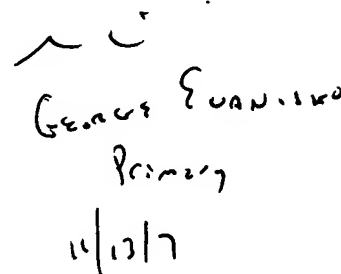 George Evanisko
Primary
11/13/7